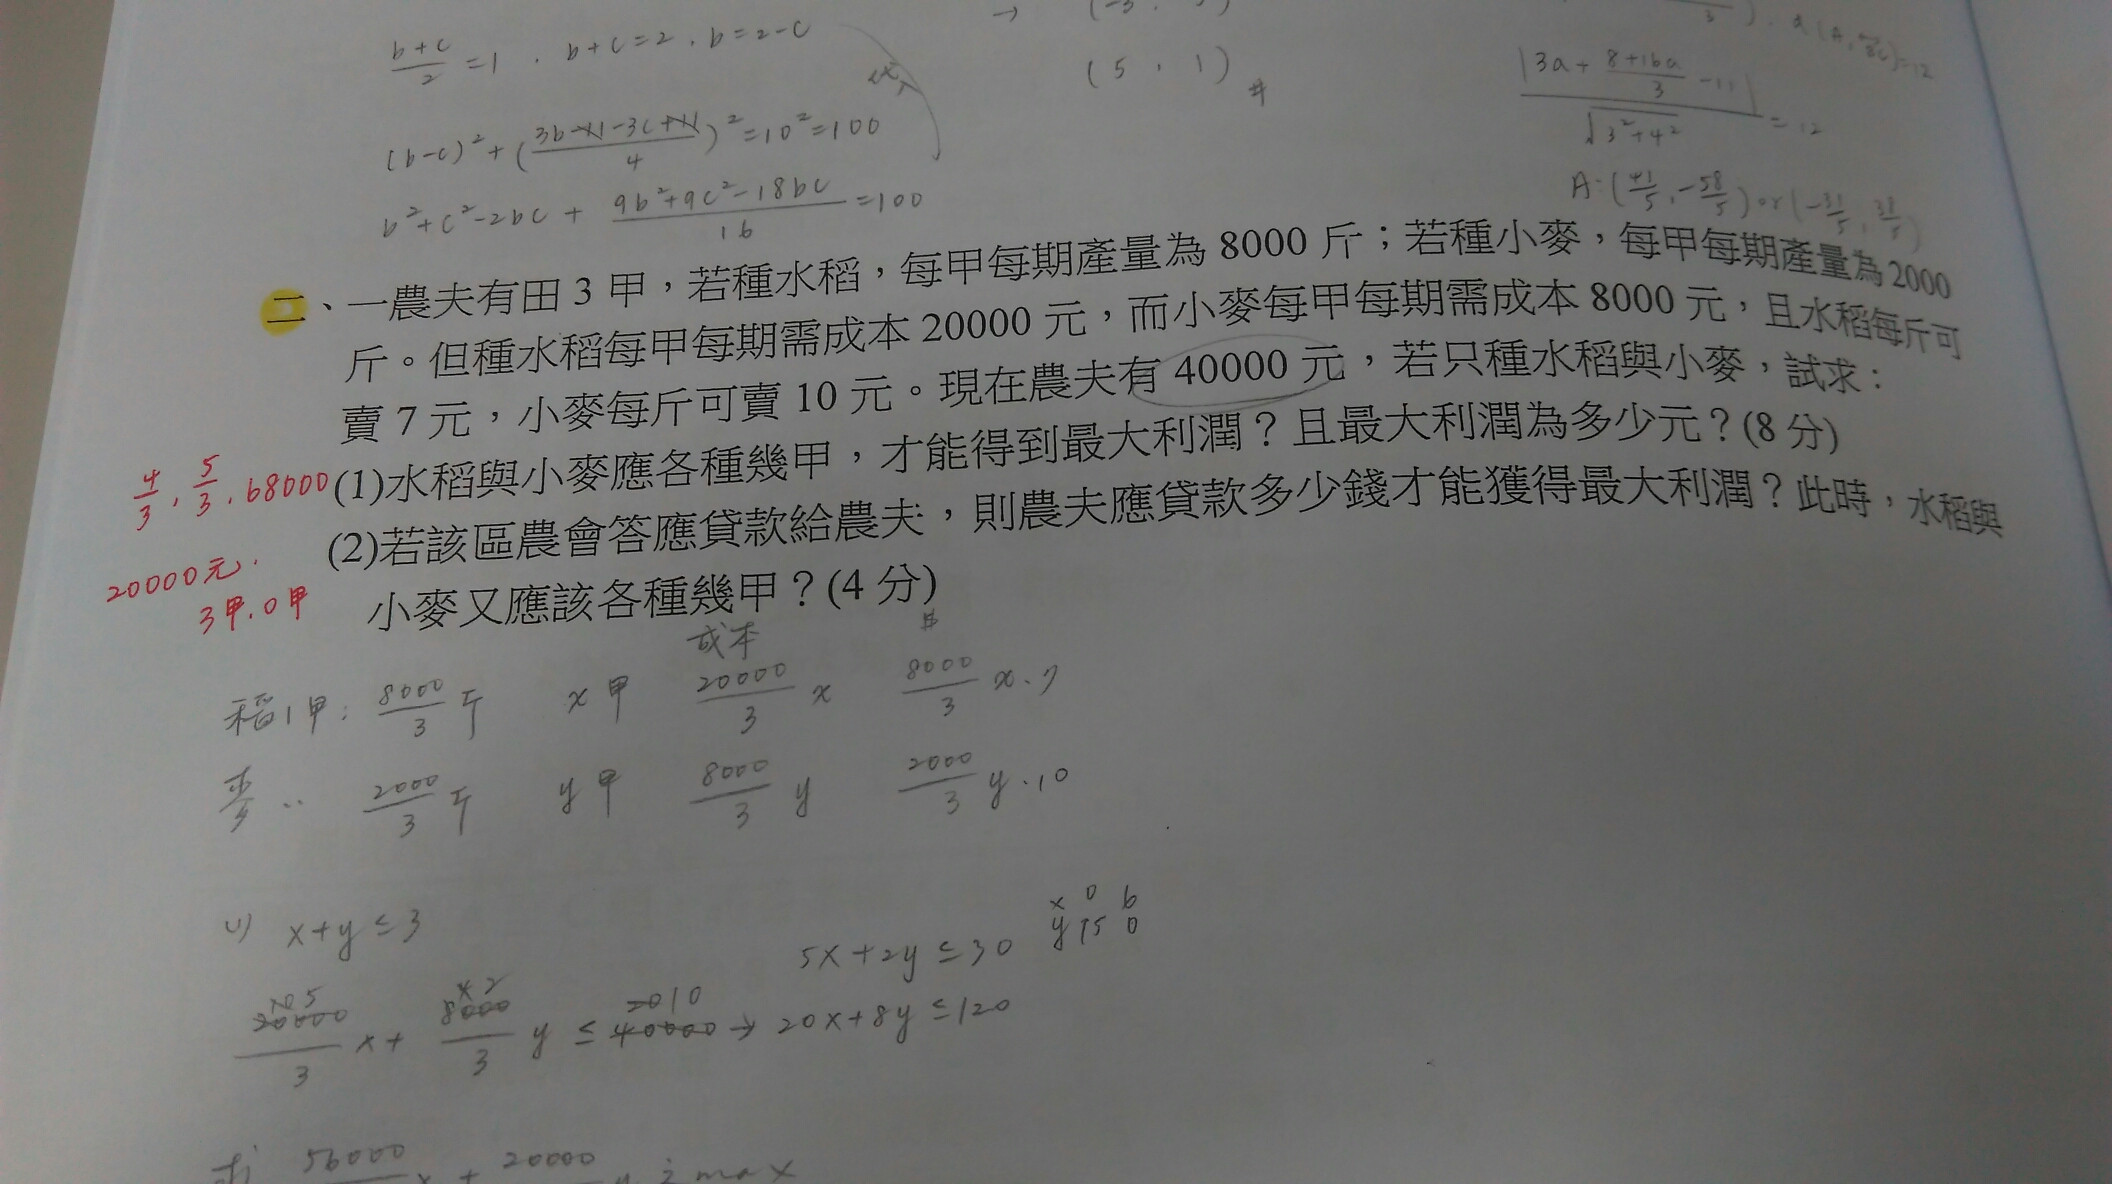 b+c/2 =1 . b+c=2 . b=2-c
→ (-3 . )
(5 . 1) #
|3a+ 8+16a/3 -11| / √3²+4² =12
(b-c)²+(3b-11-3c+11/4)²=10²=100
b²+c²-2bc+ 9b²+9c²-18bc/16 =100
A:(41/5,-58/5)or(-31/5, 38/5)
二、一農夫有田 3 甲，若種水稻，每甲每期產量為 8000 斤；若種小麥，每甲每期產量為 2000
斤。但種水稻每甲每期需成本 20000 元，而小麥每甲每期需成本 8000 元，且水稻每斤可
賣 7 元，小麥每斤可賣 10 元。現在農夫有 40000 元，若只種水稻與小麥，試求：
4/3 , 5/3 , 68000 (1)水稻與小麥應各種幾甲，才能得到最大利潤？且最大利潤為多少元？(8 分)
20000元. (2)若該區農會答應貸款給農夫，則農夫應貸款多少錢才能獲得最大利潤？此時，水稻與
3甲.0甲 小麥又應該各種幾甲？(4 分)
成本 #
稻1甲: 8000/3 斤 x甲 20000/3 x 8000/3 x.7
麥 .. 2000/3 斤 y甲 8000/3 y 2000/3 y.10
(1) x+y≤3
5x+2y≤30 x 0 6
y 15 0
20000/3 x+ 8000/3 y ≤ 40000 → 20x+8y≤120
56000 x + 20000 y max